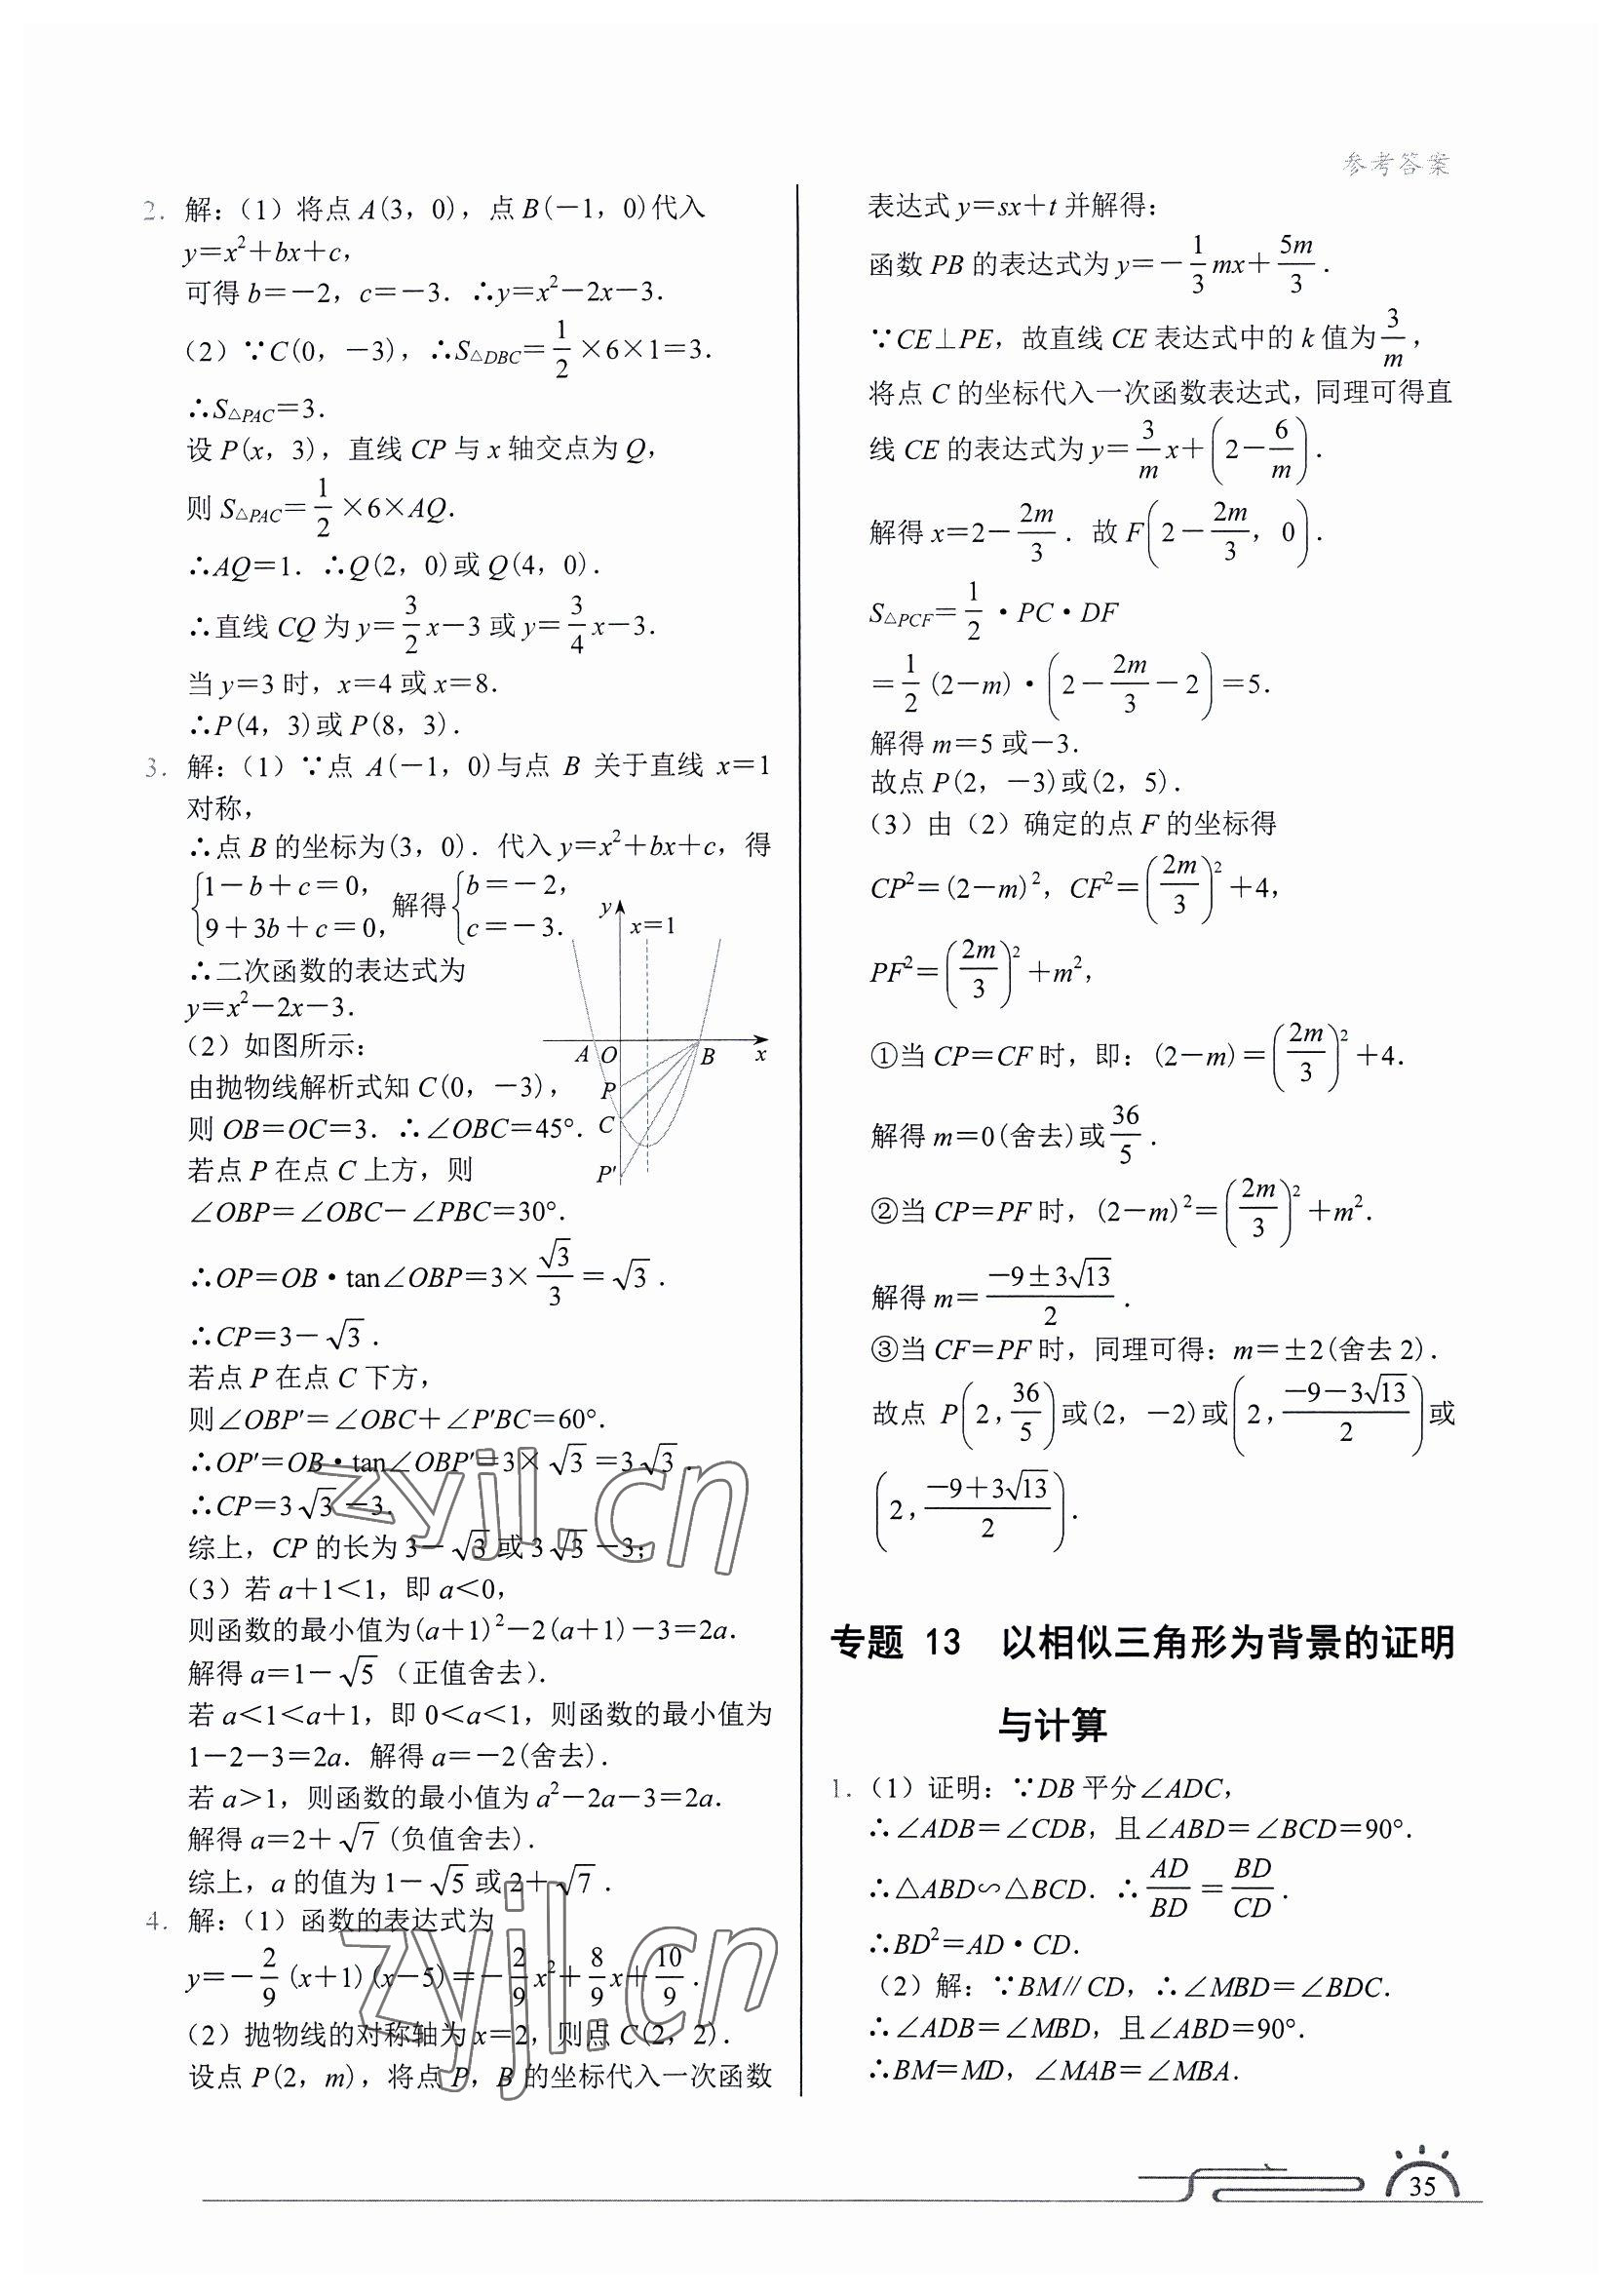 参考答案
2. 解:(1)将点A(3,0),点B(-1,0)代入
y=x²+bx+c,
可得b=-2,c=-3. ∴y=x²-2x-3.
(2)∵C(0,-3),∴S△DBC=1/2×6×1=3.
∴S△PAC=3.
设P(x,3),直线CP与x轴交点为Q,
则S△PAC=1/2×6×AQ.
∴AQ=1. ∴Q(2,0)或Q(4,0).
∴直线CQ为y=3/2x-3或y=3/4x-3.
当y=3时,x=4或x=8.
∴P(4,3)或P(8,3).
3. 解:(1)∵点A(-1,0)与点B关于直线x=1
对称,
∴点B的坐标为(3,0). 代入y=x²+bx+c,得
{1-b+c=0, 9+3b+c=0, 解得{b=-2, c=-3.
∴二次函数的表达式为
y=x²-2x-3.
(2)如图所示:
由抛物线解析式知C(0,-3),
则OB=OC=3. ∴∠OBC=45°.
若点P在点C上方,则
∠OBP=∠OBC-∠PBC=30°.
∴OP=OB·tan∠OBP=3×√3/3=√3.
∴CP=3-√3.
若点P在点C下方,
则∠OBP′=∠OBC+∠P′BC=60°.
∴OP′=OB·tan∠OBP′=3×√3=3√3.
∴CP=3√3-3.
综上,CP的长为3-√3或3√3-3;
(3)若a+1<1,即a<0,
则函数的最小值为(a+1)²-2(a+1)-3=2a.
解得a=1-√5(正值舍去).
若a<1<a+1,即0<a<1,则函数的最小值为
1-2-3=2a. 解得a=-2(舍去).
若a>1,则函数的最小值为a²-2a-3=2a.
解得a=2+√7(负值舍去).
综上,a的值为1-√5或2+√7.
4. 解:(1)函数的表达式为
y=-2/9(x+1)(x-5)=-2/9x²+8/9x+10/9.
(2)抛物线的对称轴为x=2,则点C(2,2).
设点P(2,m),将点P,B的坐标代入一次函数
y
x=1
A
O
B
x
P
C
P′
表达式y=sx+t并解得:
函数PB的表达式为y=-1/3mx+5m/3.
∵CE⊥PE,故直线CE表达式中的k值为3/m,
将点C的坐标代入一次函数表达式,同理可得直
线CE的表达式为y=3/m x+(2-6/m).
解得x=2-2m/3. 故F(2-2m/3,0).
S△PCF=1/2·PC·DF
=1/2(2-m)·(2-2m/3-2)=5.
解得m=5或-3.
故点P(2,-3)或(2,5).
(3)由(2)确定的点F的坐标得
CP²=(2-m)²,CF²=(2m/3)²+4,
PF²=(2m/3)²+m²,
①当CP=CF时,即:(2-m)=(2m/3)²+4.
解得m=0(舍去)或36/5.
②当CP=PF时,(2-m)²=(2m/3)²+m².
解得m=(-9±3√13)/2.
③当CF=PF时,同理可得:m=±2(舍去2).
故点P(2,36/5)或(2,-2)或(2,(-9-3√13)/2)或
(2,(-9+3√13)/2).
专题 13 以相似三角形为背景的证明
与计算
1. (1)证明:∵DB平分∠ADC,
∴∠ADB=∠CDB,且∠ABD=∠BCD=90°.
∴△ABD∽△BCD. ∴AD/BD=BD/CD.
∴BD²=AD·CD.
(2)解:∵BM∥CD,∴∠MBD=∠BDC.
∴∠ADB=∠MBD,且∠ABD=90°.
∴BM=MD,∠MAB=∠MBA.
35
zyjl.cn
zyjl.cn